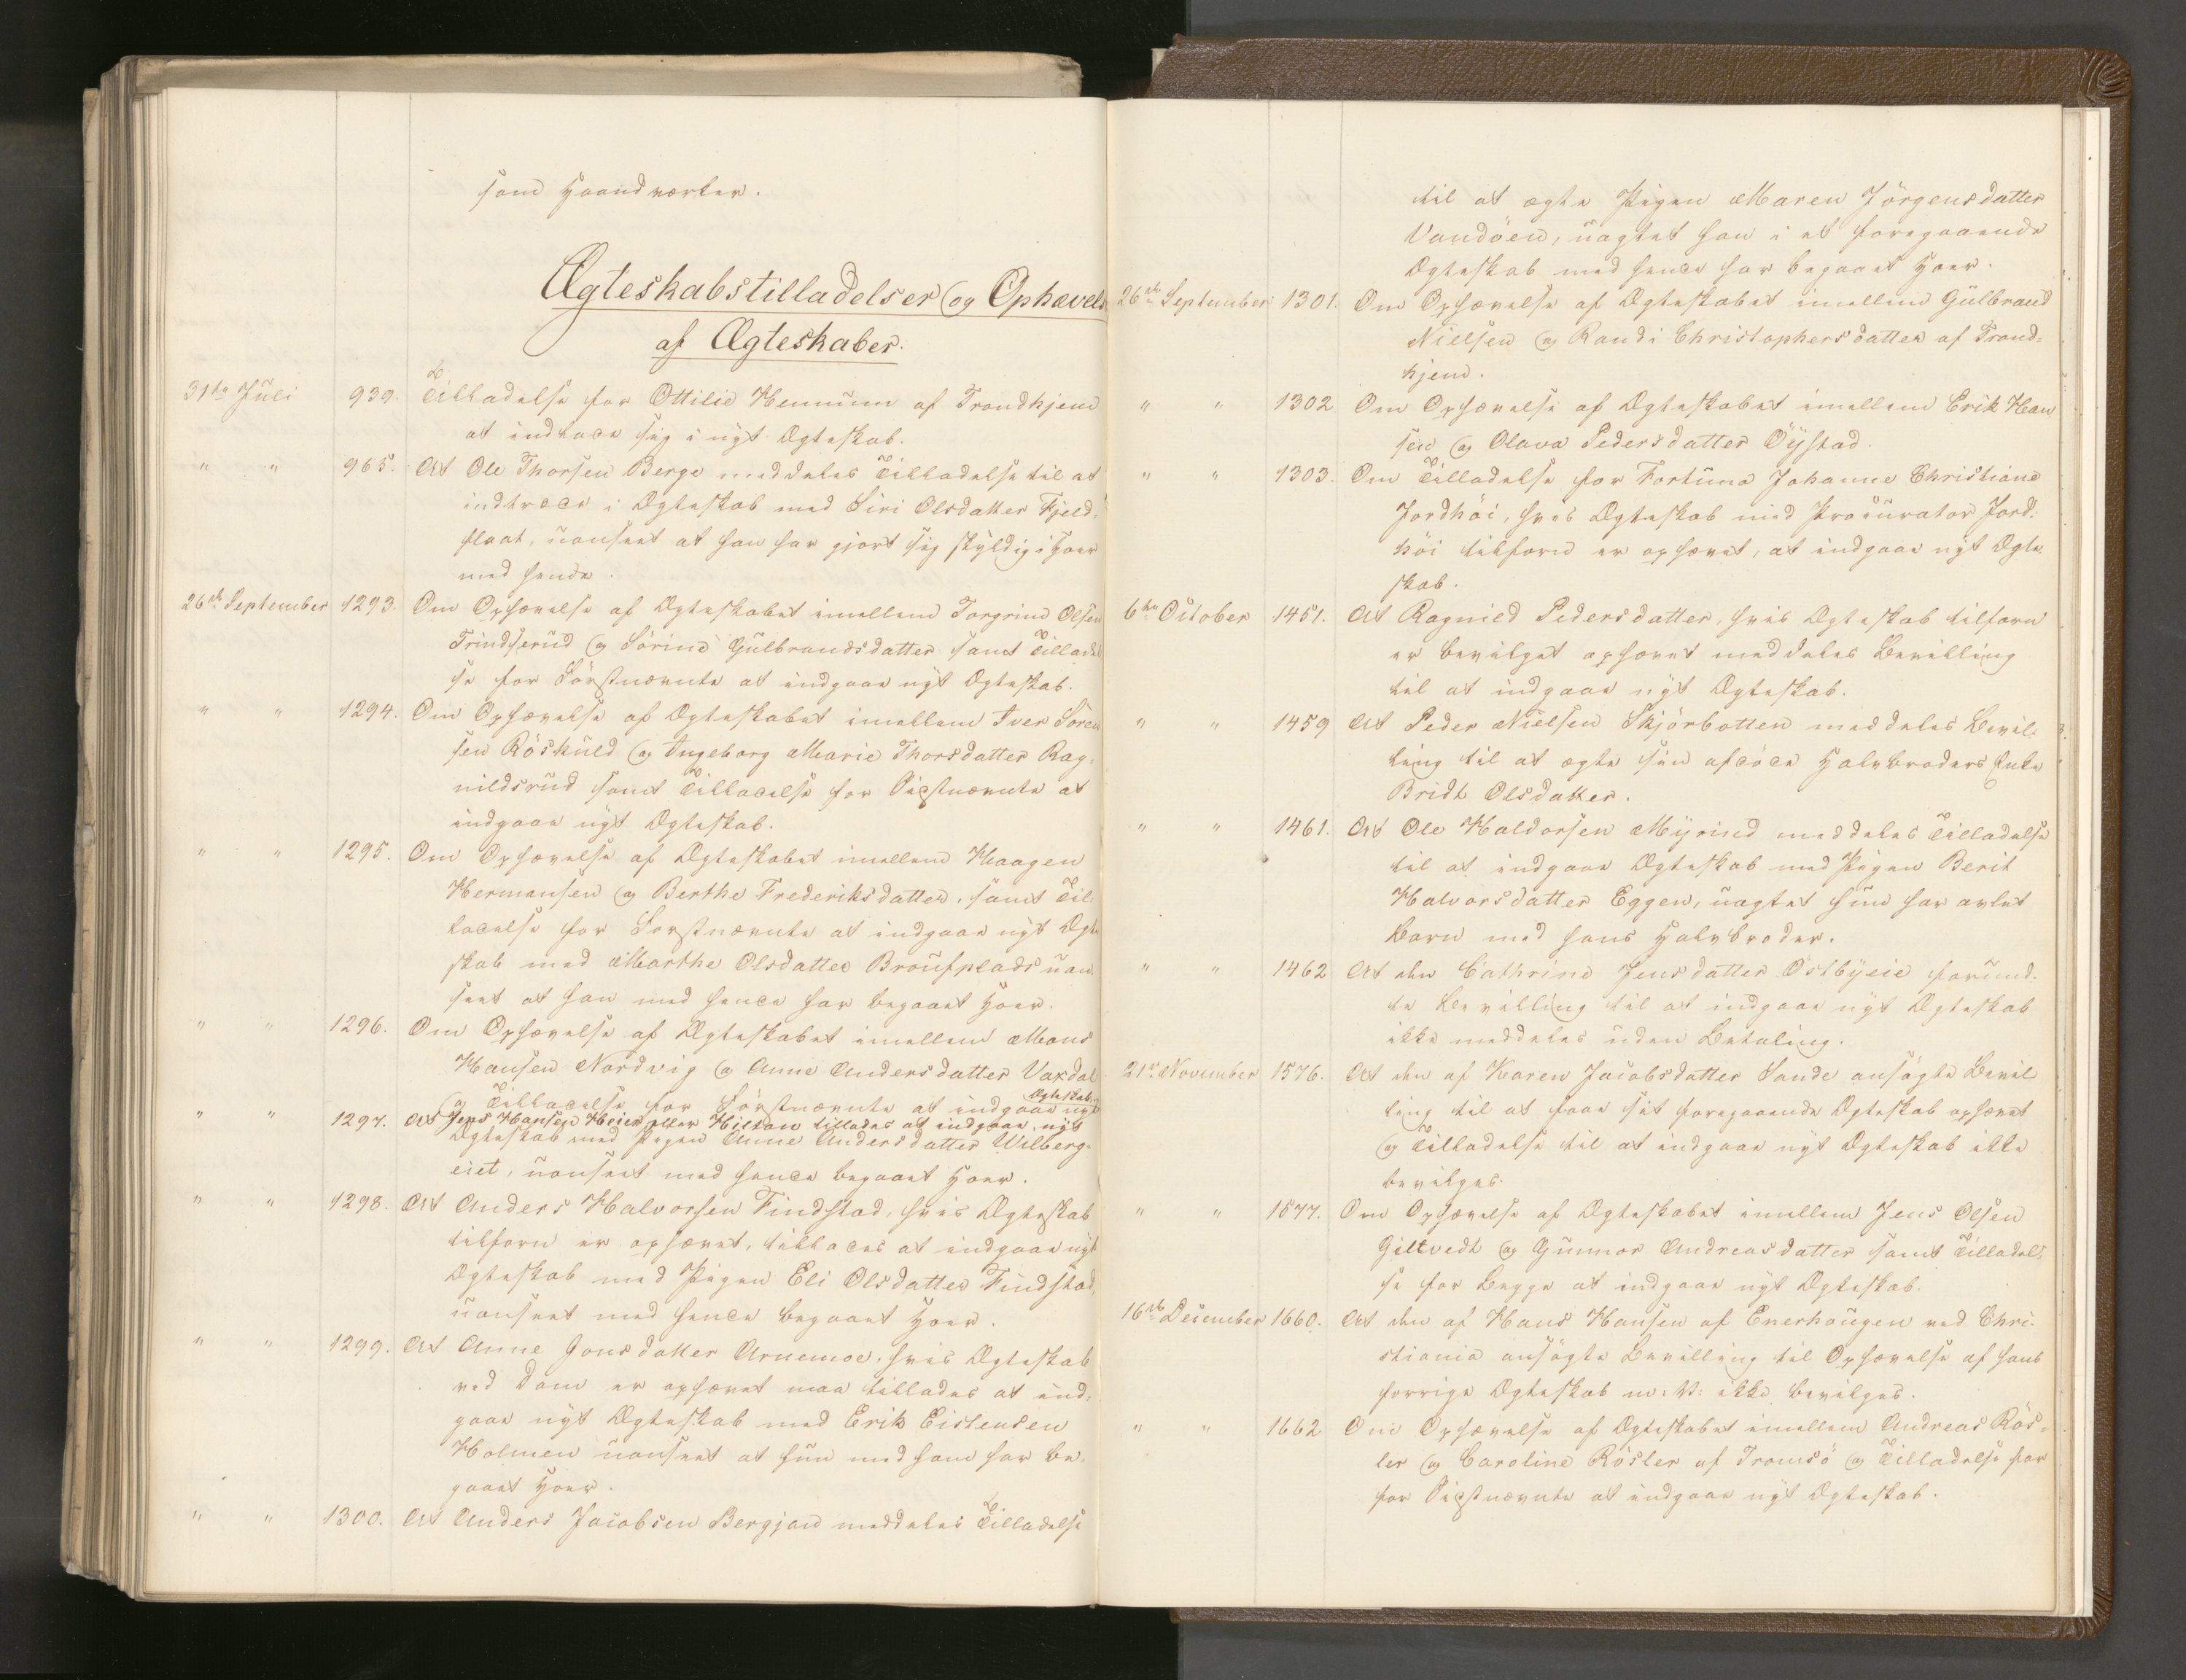 som Haandværker.
Ægteskabstilladelser og Ophævels
af Ægteskaber.
31te Juli 939. Tilladelse for Ottilie Hennum af Trondhjem
at indlade sig i nyt Ægteskab.
" " 965. At Ole Thorsen Berge meddeles Tilladelse til at
indtræde i Ægteskab med Siri Olsdatter Fjeld-
flaat, uanseet at han har gjort sig skyldig i Hoer
med hende.
26de September 1293. Om Ophævelse af Ægteskabet imellem Torgrim Olsen
Trindserud og Sörine Gulbrandsdatter samt Tilladel
se for Förstnævnte at indgaae nyt Ægteskab.
" " 1294. Om Ophævelse af Ægteskabet imellem Iver Sören
sen Röskuld og Ingeborg Marie Thorsdatter Rag-
nildsrud samt Tilladelse for Sidstnævnte at
indgaae nyt Ægteskab.
" " 1295. Om Ophævelse af Ægteskabet imellem Haagen
Hermansen og Berthe Frederiksdatter, samt Til-
ladelse for Förstnævnte at indgaae nyt Ægte
skab med Marthe Olsdatter Broufplads uan
seet at han med hende har begaaet Hoer.
" " 1296. Om Ophævelse af Ægteskabet imellem Mons
Hansen Nordvig og Anne Andersdatter Vaxdal
og Tilladelse for Förstnævnte at indgaae nyt Ægteskab.
" " 1297. At Jens Hansen Heier eller Hilton tillades at indgaae nyt
Ægteskab med Pigen Anne Andersdatter Wilberg-
eiet, uanseet med hende begaaet Hoer.
" " 1298. At Anders Halvorsen Findstad, hvis Ægteskab
tilforn er ophævet, tillades at indgaae nyt
Ægteskab med Pigen Eli Olsdatter Findstad,
uanseet med hende begaaet Hoer.
" " 1299. At Anne Jonsdatter Arnemoe, hvis Ægteskab
ved Dom er ophævet maa tillades at ind-
gaae nyt Ægteskab med Erik Eistensen
Holmen uanseet at hun med ham har be-
gaaet Hoer.
" " 1300. At Anders Jacobsen Bergjan meddeles Tilladelse
til at ægte Pigen Maren Jörgensdatter
Vandöen, uagtet han i et foregaaende
Ægteskab med hende har begaaet Hoer.
26de September 1301. Om Ophævelse af Ægteskabet imellem Gulbrand
Nielsen og Randi Christophersdatter af Trond-
hjem.
" " 1302 Om Ophævelse af Ægteskabet imellem Erik Han
sen og Olava Pedersdatter Öystad.
" " 1303. Om Tilladelse for Fortuna Johanne Christiane
Jordhöi, hvis Ægteskab med Procurator Jord-
höi tilforn er ophævet, at indgaae nyt Ægte
skab.
6te October 1451. At Ragnild Pedersdatter, hvis Ægteskab tilforn
er bevilget ophævet meddeles Bevilling
til at indgaae nyt Ægteskab.
" " 1459 At Peder Nielsen Skjörbotten meddeles Bevil-
ling til at ægte sin afdöde Halvbroders Enke
Bridt Olsdatter.
" " 1461. At Ole Haldorsen Myrind meddeles Tilladelse
til at indgaae Ægteskab med Pigen Berit
Halvorsdatter Eggen, uagtet hun har avlet
Barn med hans Halvbroder.
" " 1462 At den Cathrine Jensdatter Östbyeie forund-
te Bevilling til at indgaae nyt Ægteskab
ikke meddeles uden Betaling.
21de November 1576. At den af Karen Jacobsdatter Sande ansögte Bevil
ling til at faae sit foregaaende Ægteskab ophævet
og Tilladelse til at indgaae nyt Ægteskab ikke
bevilges.
" " 1577. Om Ophævelse af Ægteskabet imellem Jens Olsen
Giltvedt og Gunnor Andreasdatter samt Tilladel-
se for Begge at indgaae nyt Ægteskab.
16de December 1660. At den af Hans Hansen af Enerhougen ved Chri-
stiania ansögte Bevilling til Ophævelse af hans
forrige Ægteskab m: V: ikke bevilges.
" " 1662 Om Ophævelse af Ægteskabet imellem Andreas Rös-
ler og Caroline Rösler af Tromsö og Tilladelse for
for Sidstnævnte at indgaae nyt Ægteskab.